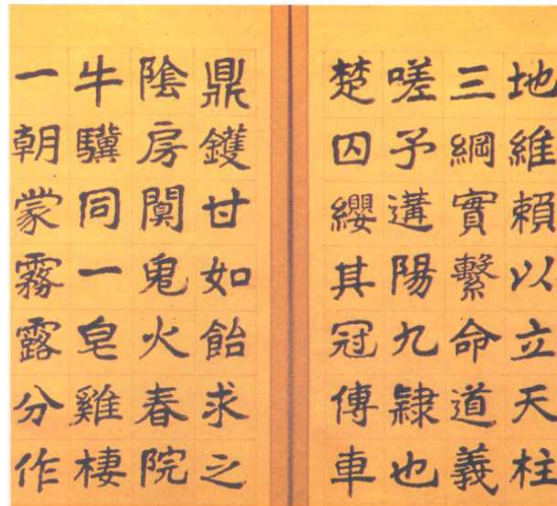 地維賴以立天柱
三綱實繫命道義
嗟予遘陽九隸也
楚囚纓其冠傳車
鼎鑊甘如飴求之
陰房闃鬼火春院
牛驥同一皂雞棲
一朝蒙霧露分作